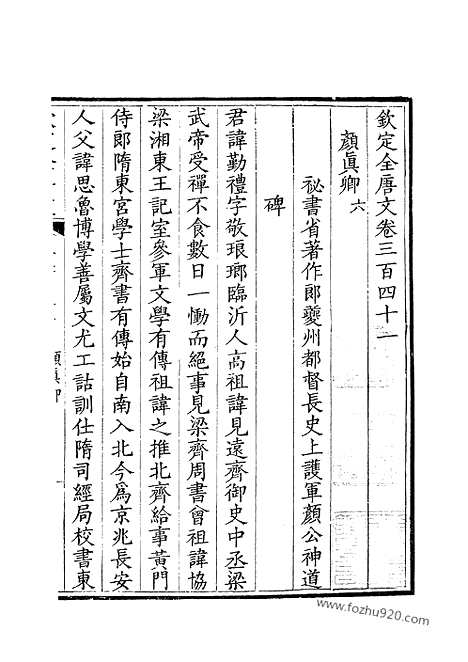 欽定全唐文卷三百四十一
顏真卿 六
祕書省著作郎夔州都督長史上護軍顏公神道
碑
君諱勤禮字敬琅瑯臨沂人高祖諱見遠齊御史中丞梁
武帝受禪不食數日一慟而絕事見梁齊周書曾祖諱協
梁湘東王記室參軍文學有傳祖諱之推北齊給事黃門
侍郎隋東宮學士齊書有傳始自南入北今爲京兆長安
人父諱思魯博學善屬文尤工詁訓仕隋司經局校書東
顏真卿
www.fozhu920.com